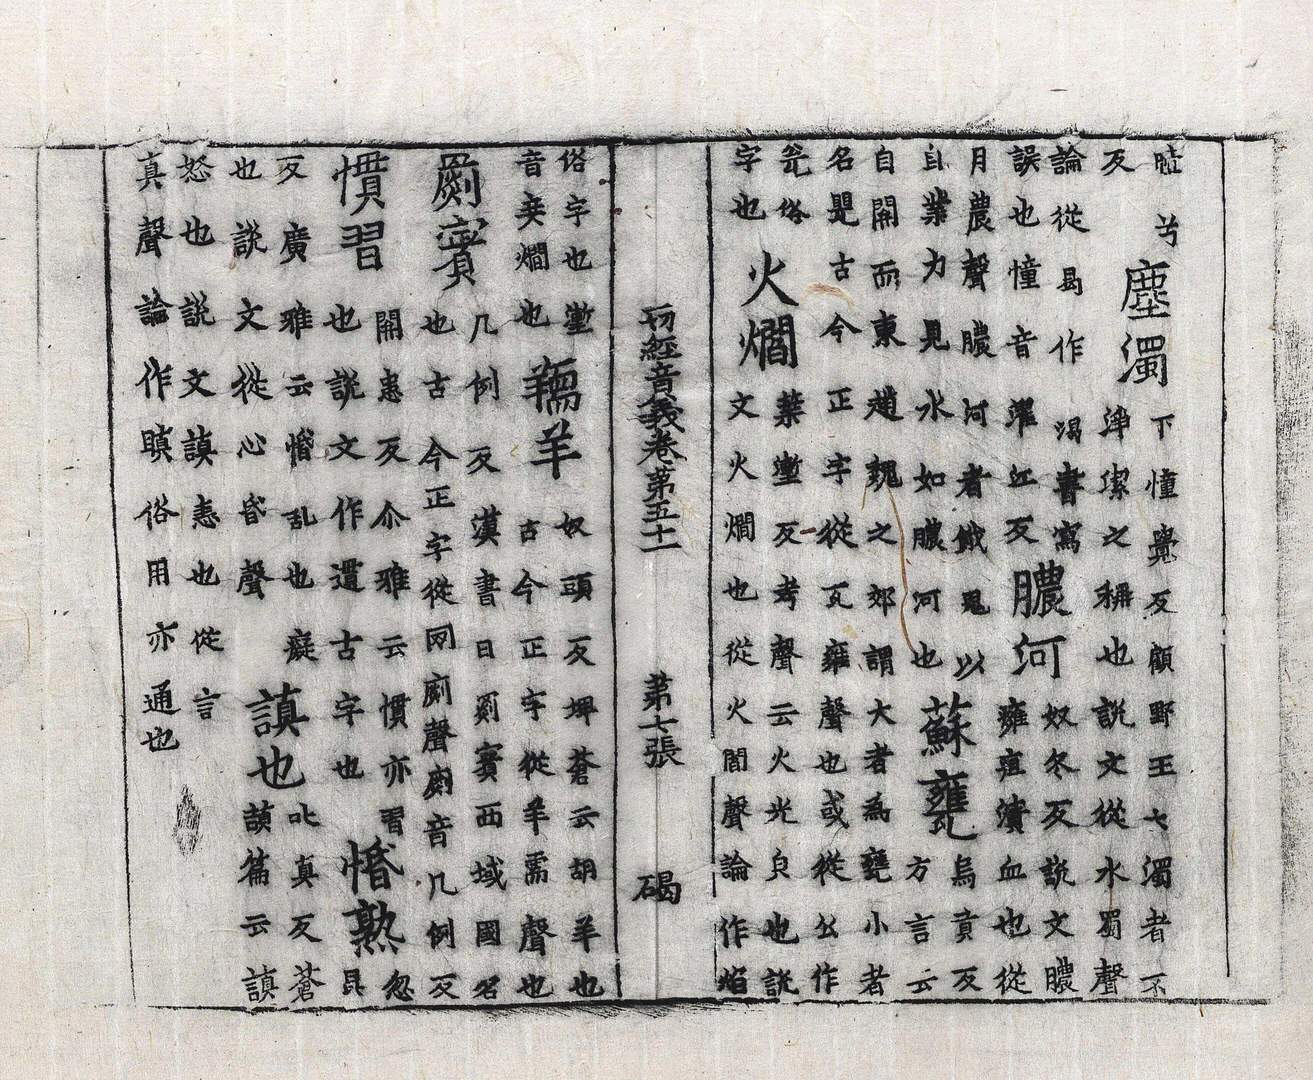 兮
反
塵濁
下憧覺反顧野王云濁者不
淨潔之稱也說文從水蜀聲
論從曷作渴書寫
誤也憧音濯江反
膿河
奴冬反說文膿
癰疽潰血也從
月農聲膿河者餓鬼以
自業力見水如膿河也
蘇甕
烏貢反
方言云
自關而東趙魏之郊謂大者為甕小者
名甖古今正字從瓦雍聲也或從公作
瓮俗
字也
火爓
葉壍反考聲云火光皃也說
文火爓也從火閻聲論作焰
一切經音義卷第五十一 第七張 碣
俗字也壍
音妾爓也
羺羊
奴頭反埤蒼云胡羊也
古今正字從羊需聲也
罽賓
几例反漢書曰罽賓西域國名
也古今正字從网㓹聲㓹音几例反
慣習
關患反尒雅云慣亦習
也說文作遺古字也
惛熟
忽
昆
反廣雅云惛乱也癡
也說文從心昏聲
謓也
叱真反蒼
頡篇云謓
怒也說文謓恚也從言
真聲論作瞋俗用亦通也